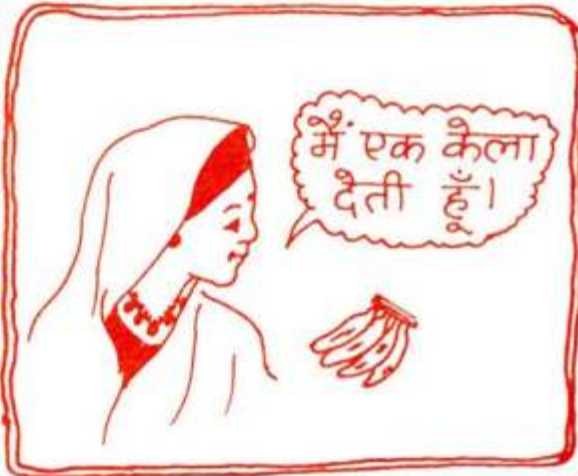 मैं एक केला
देती हूँ।